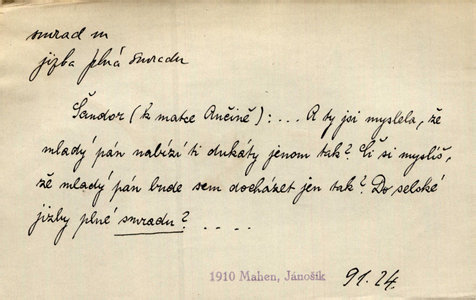 smrad m
jizba plná smradu
Šandor (k matce Ančině): ... A ty jsi myslela, že
mladý pán nabízí ti dukáty jenom tak? Či si myslíš,
že mladý pán bude sem docházet jen tak? Do selské
jizby plné smradu? ....
1910 Mahen, Jánošík 91.24.